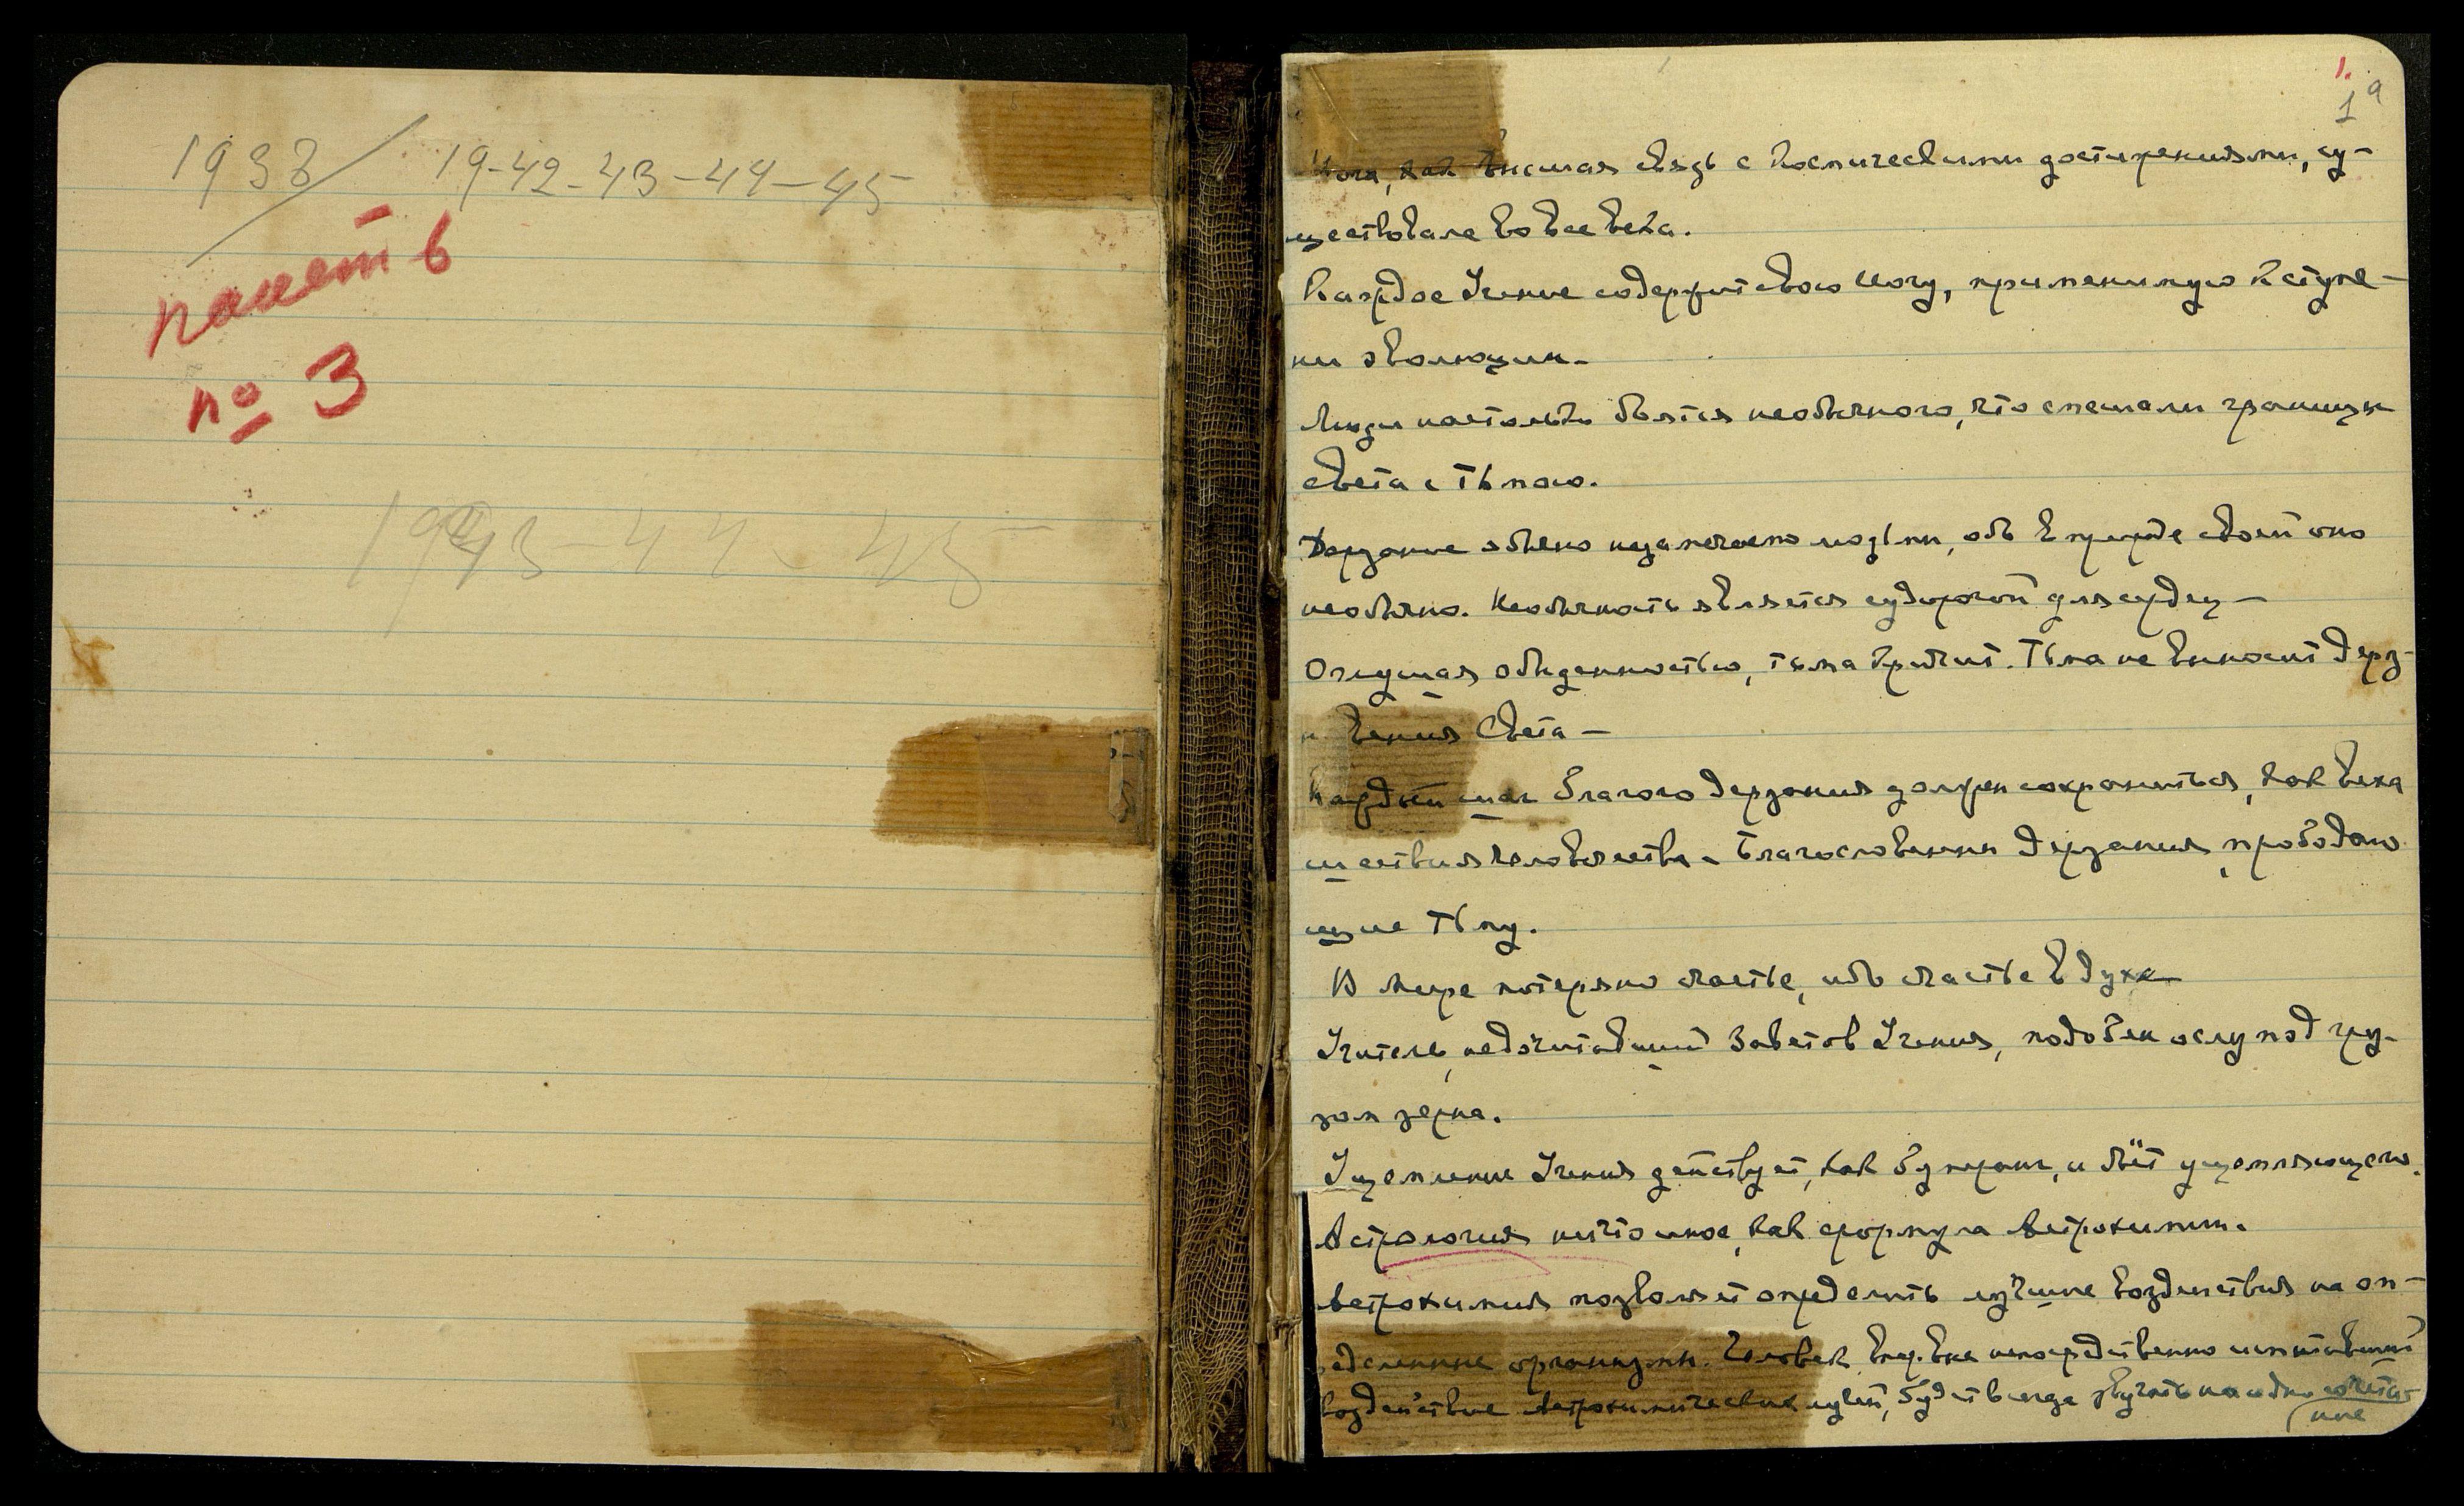 1938 / 19-42-43-44-45
пакет 6
№ 3
1943-44-45
1.
1 а
Йога, как высшая связь с космическими достижениями, су-
ществовала во все века.
Каждое Учение содержит свою Йогу, применимую к ступе-
ни эволюции.
Люди настолько боятся необычного, что смешали границы
света с тьмою.
Дерзание обычно незамечаемо людьми, ибо в природе своей оно
необычно. Необычность является судорогой для сердец —
Оглушая обыденностью, тьма кричит. Тьма не выносит дерз-
новения Света —
Каждый шаг благого дерзания должен сохраниться, как веха
шествия человечества. Благословенны дерзания, прободаю
щие тьму.
В мире потеряно счастье, ибо счастье в духе
Учитель, недочитавший Заветов Учения, подобен ослу под гру-
зом зерна.
Ущемление Учения действует, как бумеранг, и бьёт ущемляющего.
Астрология ничто иное, как формула Астрохимии.
Астрохимия позволяет определить лучшие воздействия на оп-
ределенные организмы. Человек, впервые непосредственно испытавший
воздействие Астрохимических лучей, будет всегда звучать на одно сочета-
ние